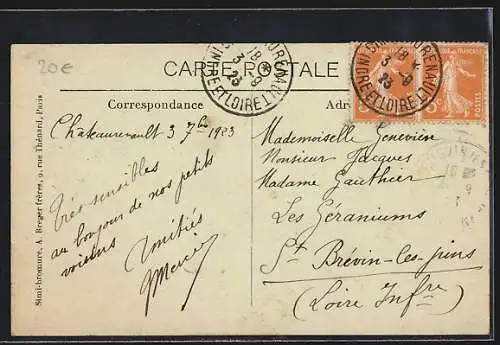 20€
CARTE POSTALE
Correspondance
Adr
Châteaurenault 3 7bre 1923
Très sensibles
au bonjour de nos petits
voisins
Amitiés
Mercier
Mademoiselle Geneviève
Monsieur Jacques
Madame Gauthier
Les Géraniums
St Brévin-les-pins
(Loire Infre)
Simi-bromure, A. Breger frères, 9, rue Thénard, Paris
RENAULT
INDRE ET LOIRE
18
3 - 9
23
RENAULT
INDRE ET LOIRE
18
3 - 9
23
POSTES